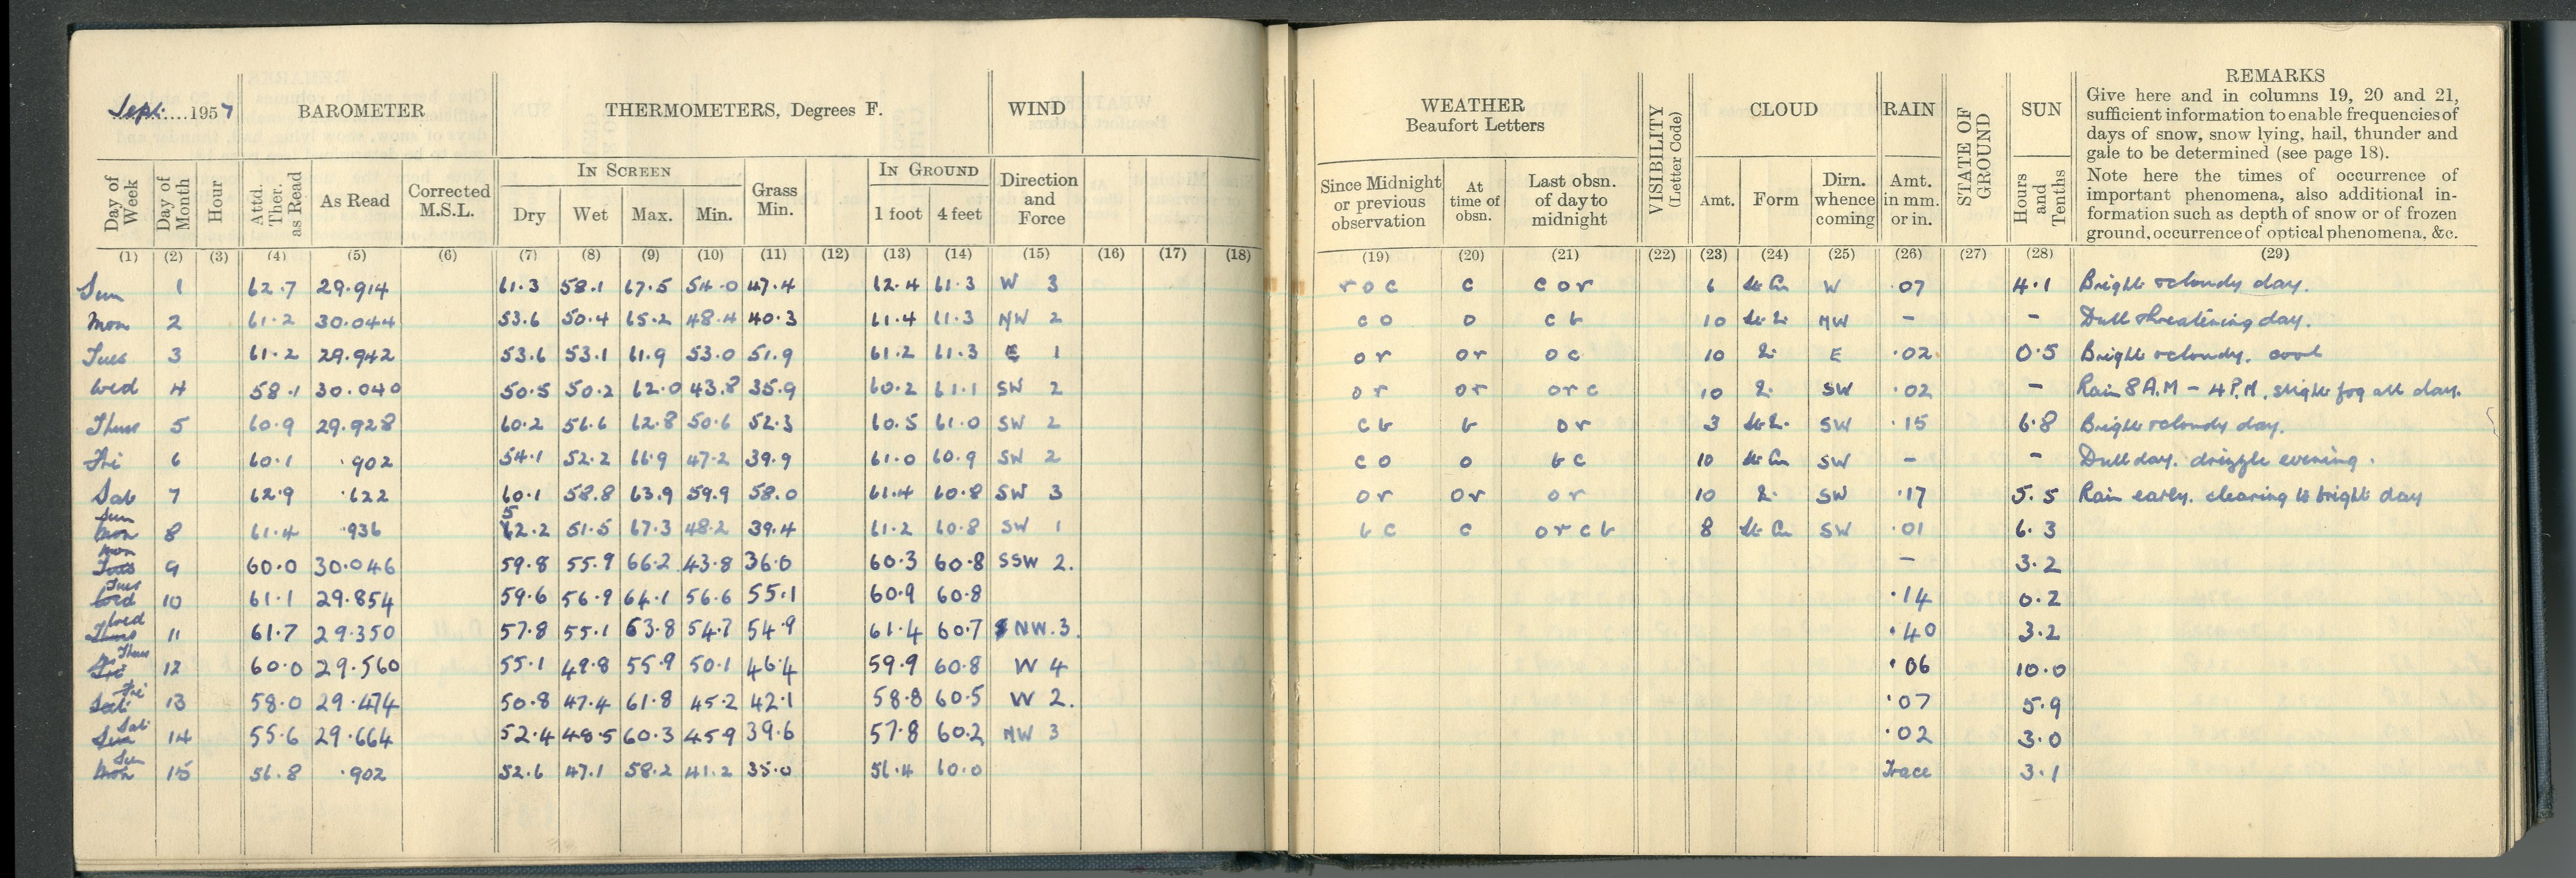 Sept. 1957 BAROMETER THERMOMETERS, Degrees F. WIND
IN SCREEN IN GROUND
Day of Week Day of Month Hour Attd. Ther. as Read As Read Corrected M.S.L. Dry Wet Max. Min. Grass Min. 1 foot 4 feet Direction and Force
(1) (2) (3) (4) (5) (6) (7) (8) (9) (10) (11) (12) (13) (14) (15) (16) (17) (18)
Sun 1 62.7 29.914 61.3 58.1 67.5 54.0 47.4 62.4 61.3 W 3
Mon 2 61.2 30.044 53.6 50.4 65.2 48.4 40.3 61.4 61.3 NW 2
Tues 3 61.2 29.942 53.6 53.1 61.9 53.0 51.9 61.2 61.3 E 1
Wed 4 58.1 30.040 50.5 50.2 62.0 43.8 35.9 60.2 61.1 SW 2
Thurs 5 60.9 29.928 60.2 56.6 62.8 50.6 52.3 60.5 61.0 SW 2
Fri 6 60.1 .902 54.1 52.2 66.9 47.2 39.9 61.0 60.9 SW 2
Sat 7 62.9 .622 60.1 58.8 63.9 59.9 58.0 61.4 60.8 SW 3
Sun
Mon 8 61.4 .936 52.2 51.5 67.3 48.2 39.4 61.2 60.8 SW 1
Mon
Tues 9 60.0 30.046 59.8 55.9 66.2 43.8 36.0 60.3 60.8 SSW 2.
Tues
Wed 10 61.1 29.854 59.6 56.9 64.1 56.6 55.1 60.9 60.8
Wed
Thurs 11 61.7 29.350 57.8 55.1 63.8 54.7 54.9 61.4 60.7 NW.3.
Thurs
Fri 12 60.0 29.560 55.1 49.8 55.9 50.1 46.4 59.9 60.8 W 4
Fri
Sat 13 58.0 29.474 50.8 47.4 61.8 45.2 42.1 58.8 60.5 W 2.
Sat
Sun 14 55.6 29.664 52.4 48.5 60.3 45.9 39.6 57.8 60.2 NW 3
Sun
Mon 15 56.8 .902 52.6 47.1 58.2 41.2 35.0 56.4 60.0
WEATHER Beaufort Letters VISIBILITY (Letter Code) CLOUD RAIN STATE OF GROUND SUN REMARKS
Give here and in columns 19, 20 and 21,
sufficient information to enable frequencies of
days of snow, snow lying, hail, thunder and
gale to be determined (see page 18).
Note here the times of occurrence of
important phenomena, also additional in-
formation such as depth of snow or of frozen
ground, occurrence of optical phenomena, &c.
Since Midnight or previous observation At time of obsn. Last obsn. of day to midnight Amt. Form Dirn. whence coming Amt. in mm. or in. Hours and Tenths
(19) (20) (21) (22) (23) (24) (25) (26) (27) (28) (29)
r o c c c o r 6 St Cu W .07 4.1 Bright & cloudy day.
c o o c b 10 NW – – Dull threatening day.
o r o r o c 10 E .02 0.5 Bright & cloudy. cool
o r o r o r c 10 SW .02 – Rain 8 A.M – 4 P.M. slight fog all day.
c b b o r 3 SW .15 6.8 Bright & cloudy day.
c o o b c 10 St Cu SW – – Dull day. drizzle evening.
o r o r o r 10 SW .17 5.5 Rain early. clearing to bright day
b c c o r c b 8 St Cu SW .01 6.3
– 3.2
.14 0.2
.40 3.2
.06 10.0
.07 5.9
.02 3.0
Trace 3.1